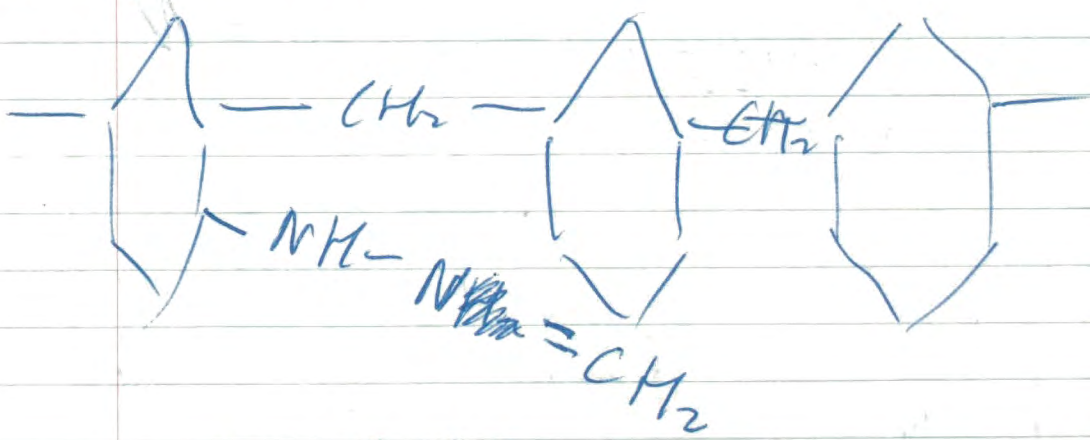 CH₂ CH₂
NH-
N =
CH₂